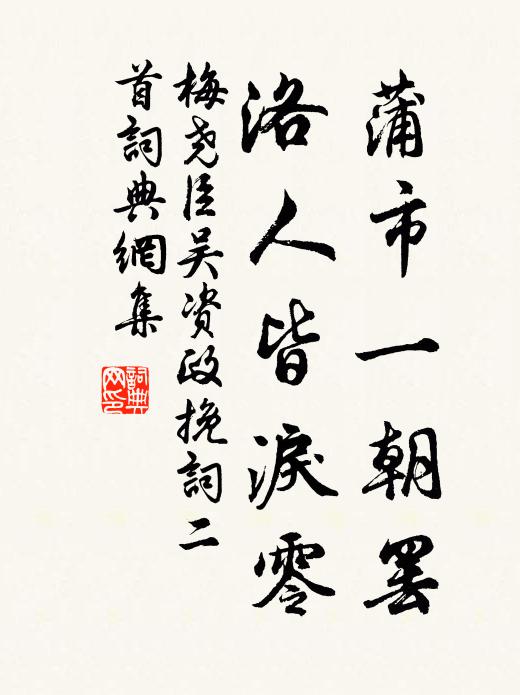 蒲市一朝罢
洛人皆淚零
梅尧臣吴资政挽詞二
首詞典網集
詞典
网印